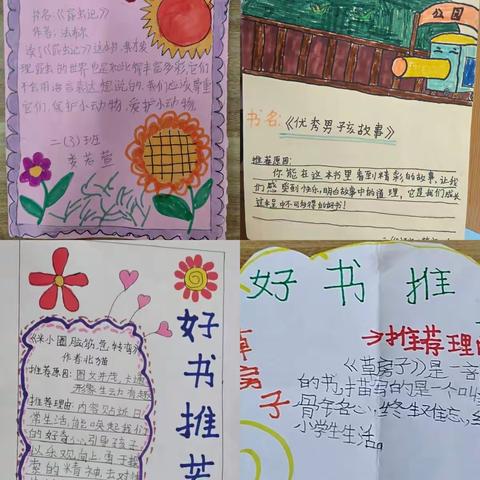 书名:《昆虫记》
作者:法布尔
读了《昆虫记》这本书,我才发
现昆虫的世界也是如此丰富多彩,它们
不会用语言表达想说的,我们应该尊重
它们,保护小动物,爱护小动物。
二(3)班
公园
书名:《优秀男孩故事》
推荐原因:
你能在这本书里看到精彩的故事,让我
们感受到快乐,明白故事中的道理,它是我们成长
过程中不可缺得的好书!
《米小圈脑筋急转弯》
作者:北猫
推荐原因:图文并茂,卡通
形象生动有趣
推荐理由:内容贴近日
常生活,能唤起我们
的好奇心,引导孩子
以乐观向上,勇于探
索的精神去对待
好书推荐
好书推
推荐理由
草房子
《草房子》是一
的书,描写的是一个叫
骨牢名心,终生难忘,
小学生生活。